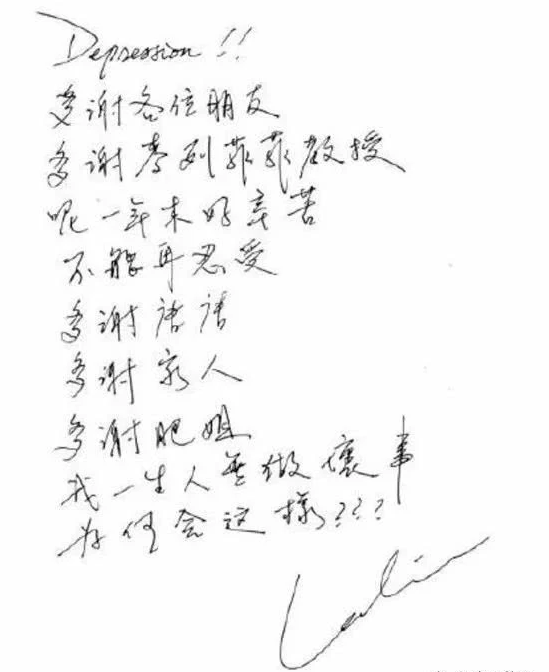 Depression!!
多谢各位朋友
多谢李列菲菲教授
呢一年来好辛苦
不能再忍受
多谢唐唐
多谢家人
多谢肥姐
我一生人無做壞事
为何会这樣???